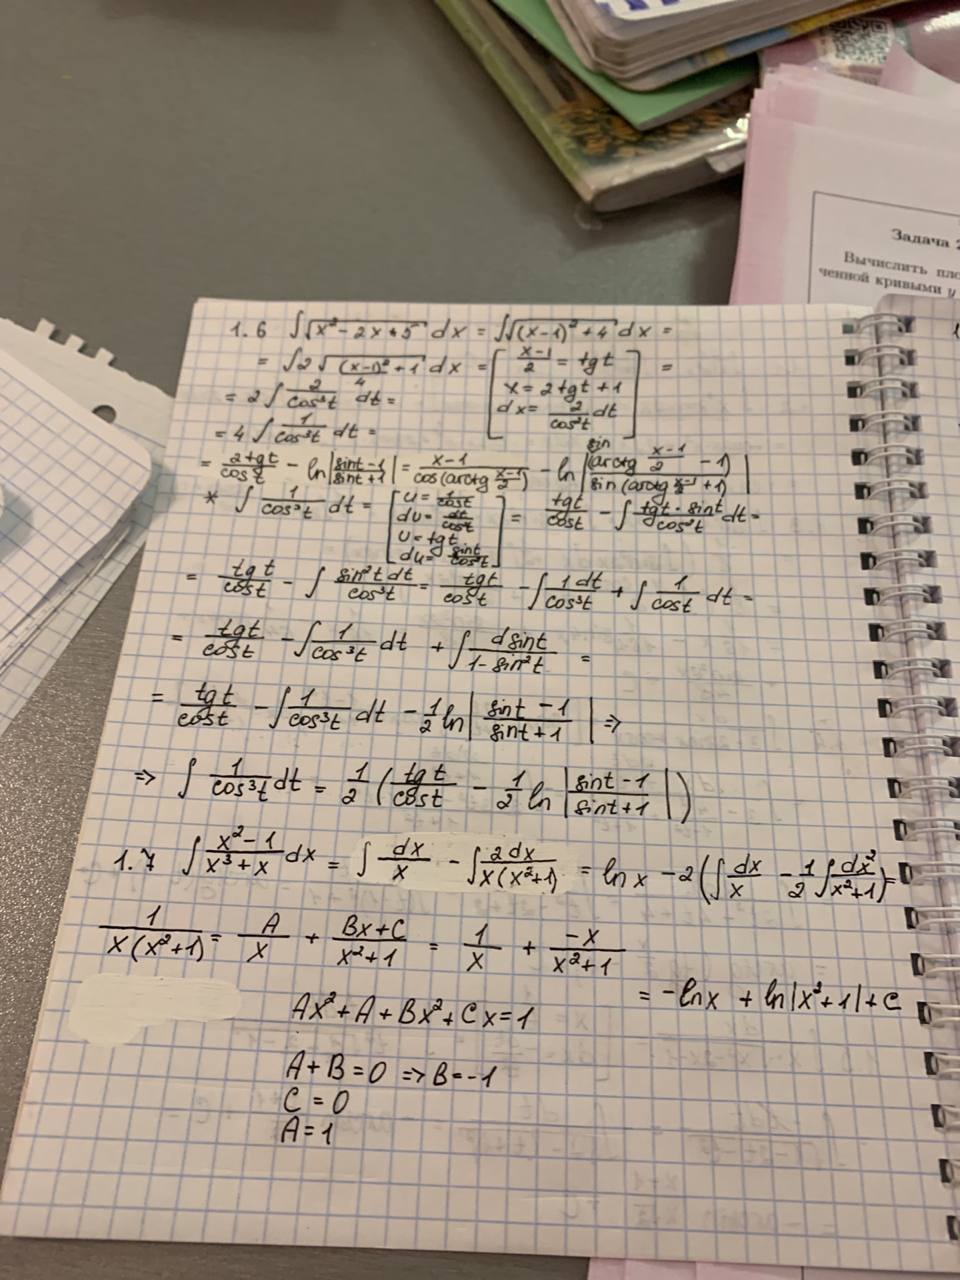 Задача 2
Вычислить пло
ченной кривыми y
1.6 ∫√(x² - 2x + 5) dx = ∫√((x-1)² + 4) dx =
= ∫2√((x-1)²/4 + 1) dx = [(x-1)/2 = tgt =
x = 2tgt + 1
dx = 2/cos²t dt]
= 2∫ 2/cos³t dt =
= 4∫ 1/cos³t dt =
= 2tgt/cost - ln|(sint-1)/(sint+1)| = (x-1)/cos(arctg (x-1)/2) - ln|sin(arctg (x-1)/2 - 1)/sin(arctg (x-1)/2 + 1)|
* ∫ 1/cos³t dt = [u = 1/cost = tgt/cost - ∫ tgt·sint/cos²t dt =
dv = dt/cos²t
v = tgt
du = sint/cos²t]
= tgt/cost - ∫ sin²t dt/cos³t = tgt/cost - ∫ 1dt/cos³t + ∫ 1/cost dt =
= tgt/cost - ∫ 1/cos³t dt + ∫ dsint/(1-sin²t) =
= tgt/cost - ∫ 1/cos³t dt - 1/2 ln|(sint-1)/(sint+1)| ⇒
⇒ ∫ 1/cos³t dt = 1/2 (tgt/cost - 1/2 ln|(sint-1)/(sint+1)|)
1.7 ∫ (x²-1)/(x³+x) dx = ∫ dx/x - ∫ 2dx/(x(x²+1)) = lnx - 2(∫ dx/x - 1/2 ∫ dx²/(x²+1)) =
1/(x(x²+1)) = A/x + (Bx+C)/(x²+1) = 1/x + -x/(x²+1)
= -lnx + ln|x²+1| + C
Ax² + A + Bx² + Cx = 1
A + B = 0 ⇒ B = -1
C = 0
A = 1